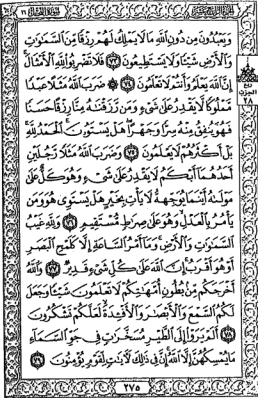 وَيَعْبُدُونَ مِن دُونِ ٱللَّهِ مَا لَا يَمْلِكُ لَهُمْ رِزْقًا مِّنَ ٱلسَّمَٰوَٰتِ
وَٱلْأَرْضِ شَيْـًٔا وَلَا يَسْتَطِيعُونَ ٧٣ فَلَا تَضْرِبُوا۟ لِلَّهِ ٱلْأَمْثَالَ
إِنَّ ٱللَّهَ يَعْلَمُ وَأَنتُمْ لَا تَعْلَمُونَ ٧٤ ۞ ضَرَبَ ٱللَّهُ مَثَلًا عَبْدًا
مَّمْلُوكًا لَّا يَقْدِرُ عَلَىٰ شَىْءٍ وَمَن رَّزَقْنَٰهُ مِنَّا رِزْقًا حَسَنًا
فَهُوَ يُنفِقُ مِنْهُ سِرًّا وَجَهْرًا ۖ هَلْ يَسْتَوُۥنَ ۚ ٱلْحَمْدُ لِلَّهِ ۚ
بَلْ أَكْثَرُهُمْ لَا يَعْلَمُونَ ٧٥ وَضَرَبَ ٱللَّهُ مَثَلًا رَّجُلَيْنِ
أَحَدُهُمَآ أَبْكَمُ لَا يَقْدِرُ عَلَىٰ شَىْءٍ وَهُوَ كَلٌّ عَلَىٰ
مَوْلَىٰهُ أَيْنَمَا يُوَجِّههُّ لَا يَأْتِ بِخَيْرٍ ۖ هَلْ يَسْتَوِى هُوَ وَمَن
يَأْمُرُ بِٱلْعَدْلِ ۙ وَهُوَ عَلَىٰ صِرَٰطٍ مُّسْتَقِيمٍ ٧٦ وَلِلَّهِ غَيْبُ
ٱلسَّمَٰوَٰتِ وَٱلْأَرْضِ ۚ وَمَآ أَمْرُ ٱلسَّاعَةِ إِلَّا كَلَمْحِ ٱلْبَصَرِ
أَوْ هُوَ أَقْرَبُ ۚ إِنَّ ٱللَّهَ عَلَىٰ كُلِّ شَىْءٍ قَدِيرٌ ٧٧ وَٱللَّهُ
أَخْرَجَكُم مِّنۢ بُطُونِ أُمَّهَٰتِكُمْ لَا تَعْلَمُونَ شَيْـًٔا وَجَعَلَ
لَكُمُ ٱلسَّمْعَ وَٱلْأَبْصَٰرَ وَٱلْأَفْـِٔدَةَ ۙ لَعَلَّكُمْ تَشْكُرُونَ
٧٨ أَلَمْ يَرَوْا۟ إِلَى ٱلطَّيْرِ مُسَخَّرَٰتٍ فِى جَوِّ ٱلسَّمَآءِ
مَا يُمْسِكُهُنَّ إِلَّا ٱللَّهُ ۗ إِنَّ فِى ذَٰلِكَ لَـَٔايَٰتٍ لِّقَوْمٍ يُؤْمِنُونَ ٧٩
ربع
الحزب
٢٨
٢٧٥